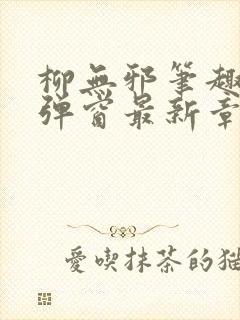 柳無邪筆趣
彈窗最新章
愛喫抹茶的猫